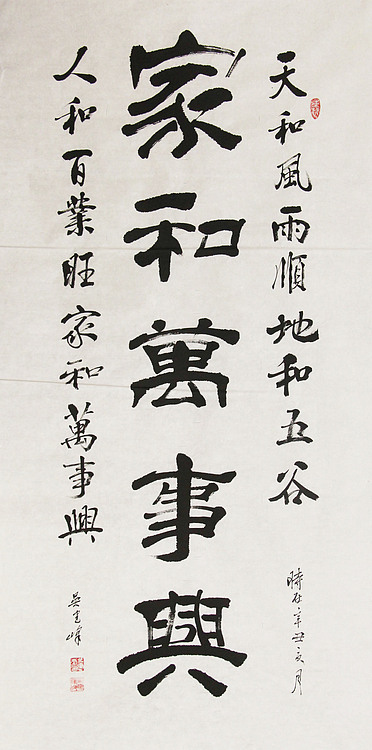 天和風雨順地和五谷
時在辛丑亥月
家和萬事興
人和百業旺家和萬事興
吳
峰